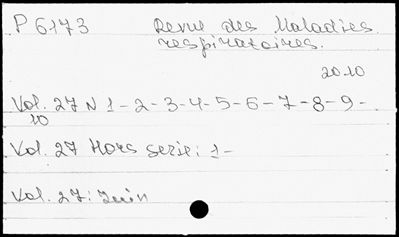 P 6173 Revue des Maladies
respiratoires.
2010
Vol. 27 N 1-2-3-4-5-6-7-8-9-
10
Vol. 27 Hors serie: 1-
Vol. 27: Juin